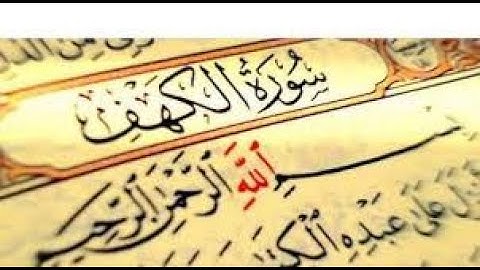 سُورَةُ الكَهْفِ
بِسْمِ اللَّهِ الرَّحْمَٰنِ الرَّحِيمِ
عَلَىٰ عَبْدِهِ الْكِتَابَ